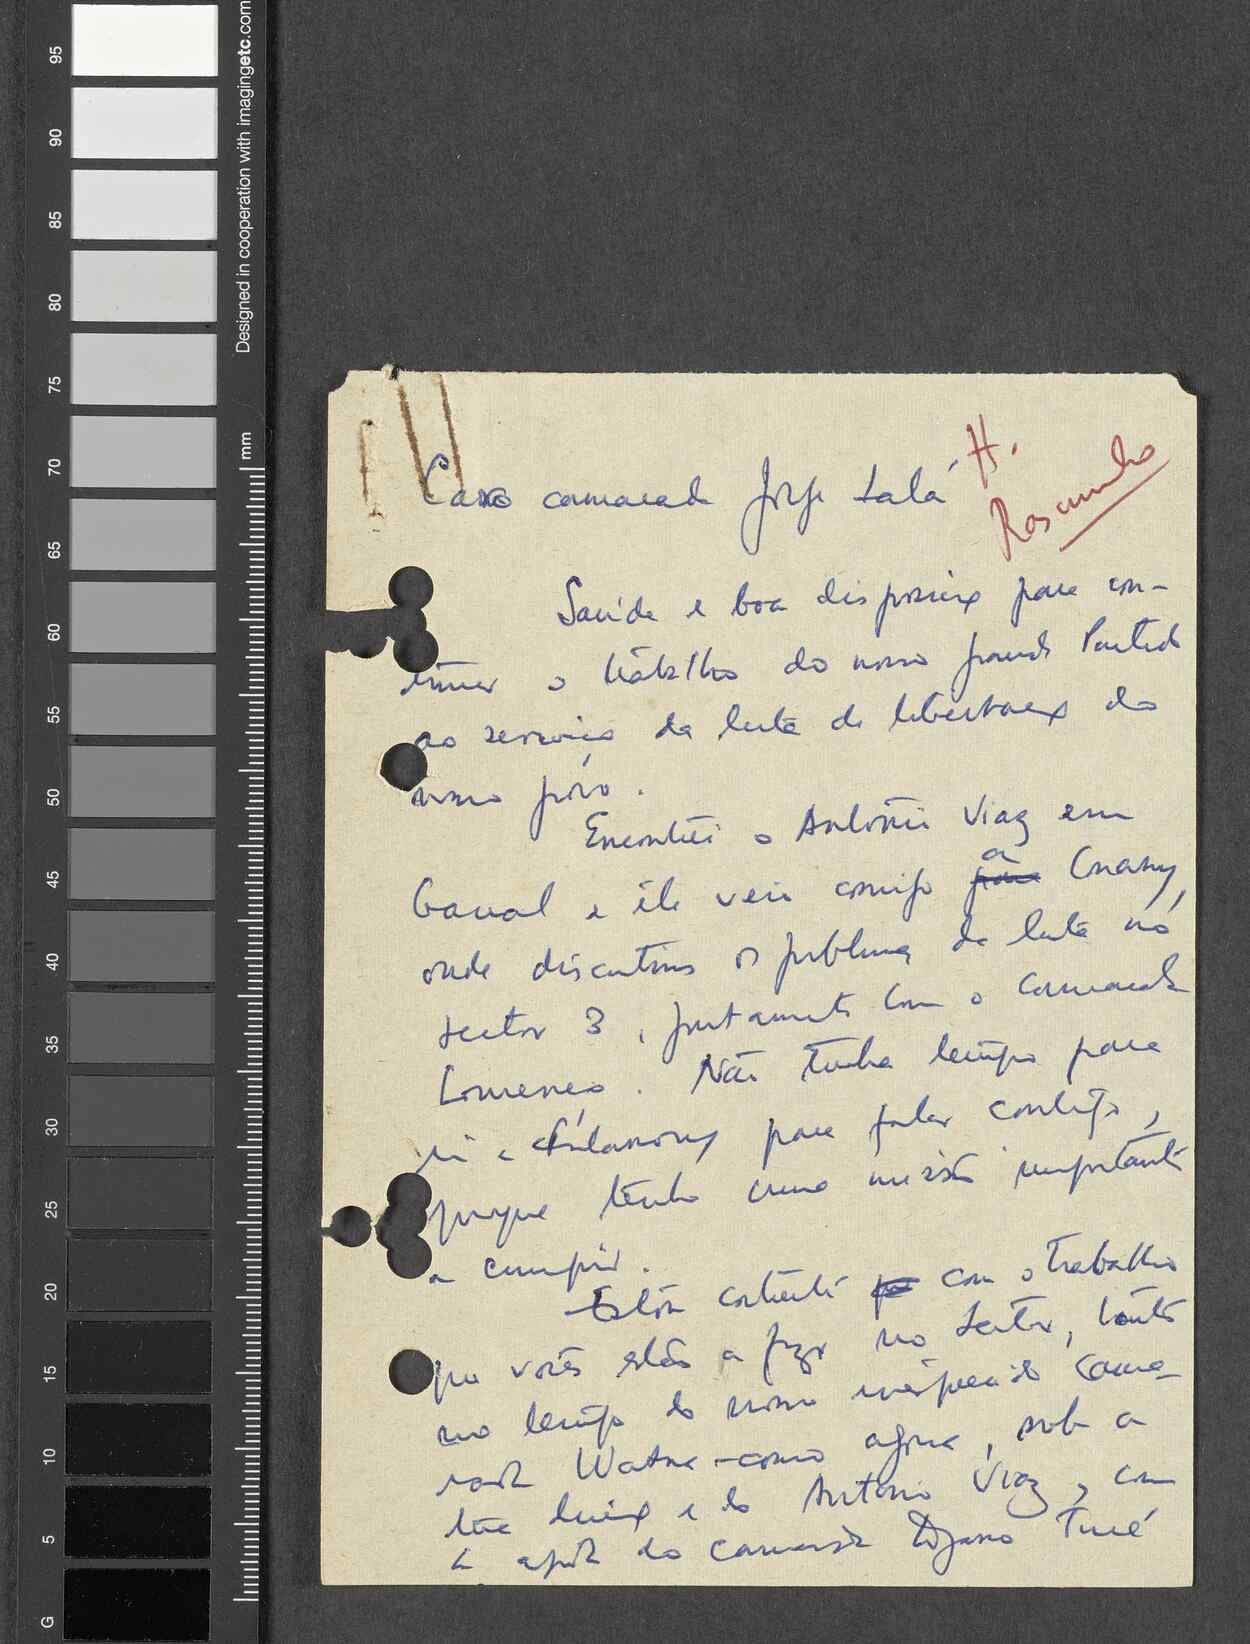 Designed in cooperation with imagingetc.com
mm
95
90
85
80
75
70
65
60
55
50
45
40
35
30
25
20
15
10
5
G
H.
Rosamundo
Caro camarada Jorge Lalá
Saúde e boa disposição para con-
tinuar o trabalho do nosso grande Partido
ao serviço da luta de libertação do
nosso póvo.
Encontrei o António Viaz em
Gaoual e êle veio comigo a Conakry,
onde discutimos os problemas da luta no
sector 3, juntamente com o camarada
Lourenço. Não tenho tempo para
ir a para falar contigo,
porque tenho uma missão importante
a cumprir.
Estou contente com o trabalho
que vocês estão a fazer no sector, tanto
no tempo do nosso inesquecido cama-
rada como agora, sob a
tua direção e do António Viaz, com
o apoio do camarada Turé